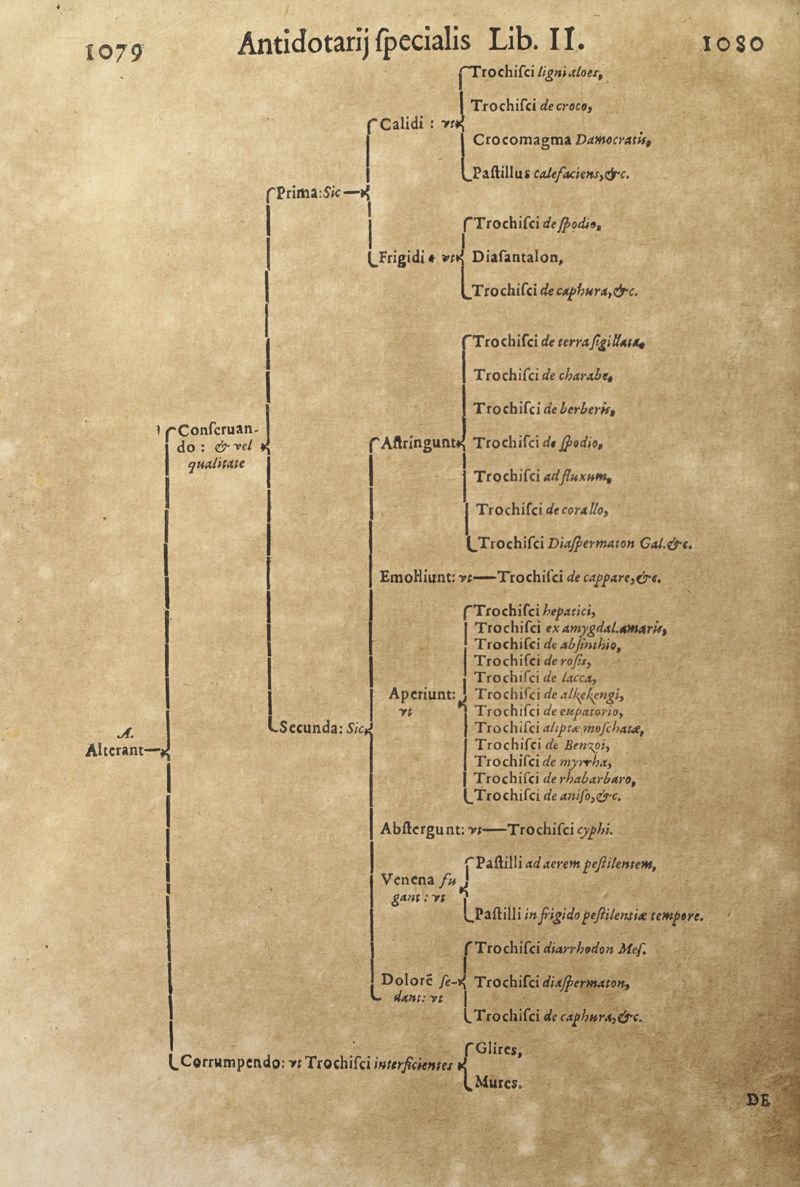 1079 Antidotarij ſpecialis Lib. II. 1080
Trochiſci ligni aloes,
Trochiſci de croco,
Calidi : vt
Crocomagma Damocratis,
Paſtillus calefaciens, &c.
Prima: Sic
Trochiſci de ſpodio,
Frigidi : vt Diaſantalon,
Trochiſci de caphura, &c.
Trochiſci de terra ſigillata,
Trochiſci de charabe,
Trochiſci de berberis,
Conſeruan-
do : & vel
qualitate
Aſtringunt Trochiſci de ſpodio,
Trochiſci ad fluxum,
Trochiſci de corallo,
Trochiſci Diaſpermaton Gal. &c.
Emolliunt: vt Trochiſci de cappare, &c.
Trochiſci hepatici,
Trochiſci ex amygdal. amaris,
Trochiſci de abſinthio,
Trochiſci de roſis,
Trochiſci de lacca,
Aperiunt: Trochiſci de alkekengi,
vt Trochiſci de eupatorio,
Secunda: Sic Trochiſci aliptæ moſchatæ,
Trochiſci de Benzoi,
Trochiſci de myrrha,
Trochiſci de rhabarbaro,
Trochiſci de aniſo, &c.
A.
Alterant
Abſtergunt: vt Trochiſci cyphi.
Paſtilli ad aerem peſtilentem,
Venena fu
gant : vt
Paſtilli in frigido peſtilentiæ tempore.
Trochiſci diarrhodon Meſ.
Dolorē ſe- Trochiſci diaſpermaton,
dant: vt
Trochiſci de caphura, &c.
Glires,
Corrumpendo: vt Trochiſci interficientes
Mures.
DE